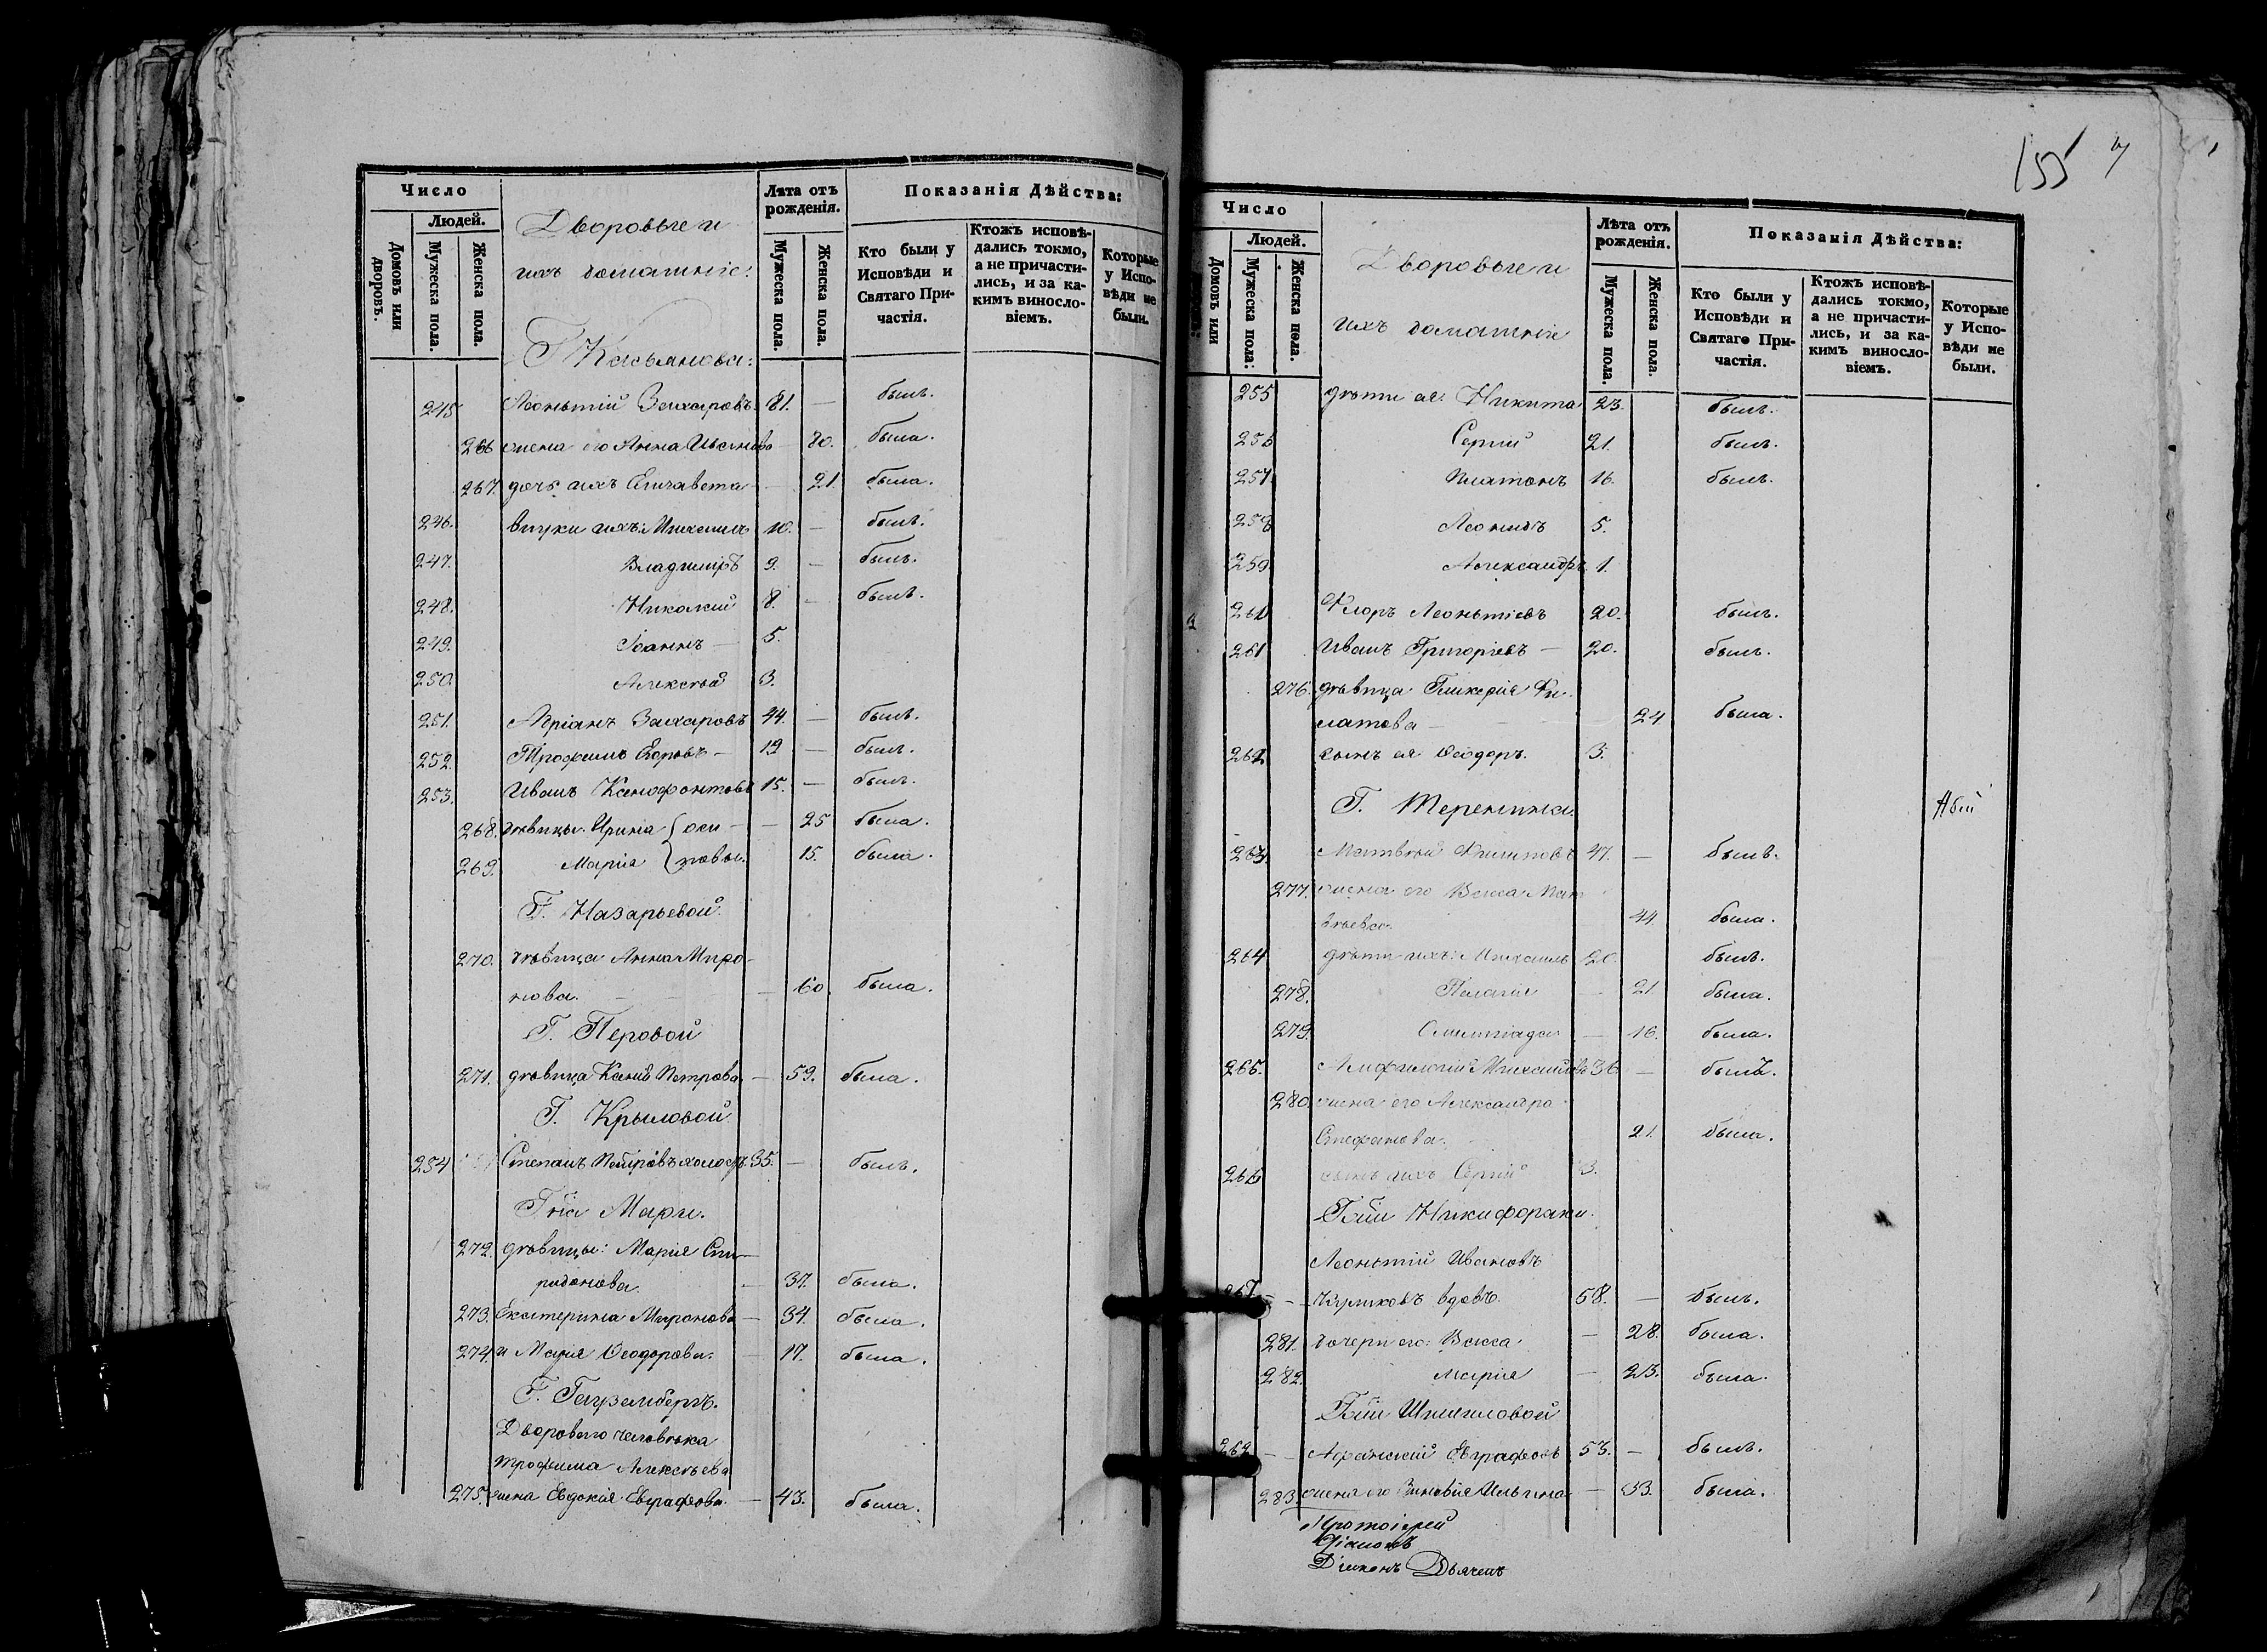 Число
Людей.
Домовъ или дворовъ.
Мужеска пола.
Женска пола.
Дворовые и
ихъ домашніе:
Лѣта отъ рожденія.
Мужеска пола.
Женска пола.
Показанія Дѣйства:
Кто были у Исповѣди и Святаго Причастія.
Ктожъ исповѣдались токмо, а не причастились, и за какимъ винословіемъ.
Которые у Исповѣди не были.
Г Касьянова:
245 Леонтій Захаровъ 81. — былъ.
266 жена его Анна — 80. была.
267. дочь ихъ Елизавета — 21. была.
246. внуки ихъ: Михаилъ 10. — былъ.
247. Владиміръ 9. — былъ.
248. Николай 8. — былъ.
249. Іоаннъ — 5.
250. Алексѣй 3.
251. Адріанъ Захаровъ 44. — былъ.
252. Трофимъ — 19 — былъ.
253. Иванъ Ксенофонтовъ 15. — былъ.
268. дѣвицы: Ирина { оси- — 25 была.
269. Марія {повы. 15. была.
Г. Назарьевой.
270. дѣвица Анна Миро-
нова. — 60. была.
Г. Перовой
271. дѣвица Ксенія Петрова — 59. была.
Г. Крыловой
254 Степанъ Петровъ холостъ 35. — былъ.
Г жи Мари.
272. дѣвицы: Марія Спи-
ридонова — 37. была.
273. Екатерина Миронова — 34. была.
274. и Марія Ѳеодорова. — 17. была.
Двороваго человѣка
Трофима Алексѣева
275. жена Евдокія Евграфова. — 43. была.
155
Число
Людей.
Домовъ или
Мужеска пола.
Женска пола.
Дворовые и
ихъ домашніе
Лѣта отъ рожденія.
Мужеска пола.
Женска пола.
Показанія Дѣйства:
Кто были у Исповѣди и Святаго Причастія.
Ктожъ исповѣдались токмо, а не причастились, и за какимъ винословіемъ.
Которые у Исповѣди не были.
255 дѣти ея: Никита 23. былъ.
256 Сергій 21. былъ.
257 Платонъ 16. былъ.
258 Леонидъ 5.
259 Александръ 1.
260 Флоръ Леонтіевъ 20. былъ.
261 Иванъ Григорьевъ — 20. былъ.
276. дѣвица Гликерія Фи-
латова — 24 была.
262 сынъ ея Ѳеодоръ. 3.
Г. Теренина.
263. Матвѣй Филиповъ 47. — былъ.
277. жена его Васса Мат
вѣева 44. была.
264 дѣти ихъ: Михаилъ 20. былъ.
278. Пелагія — 21 была.
279. Олимпіада — 16. была.
265. Михайловъ 36 — былъ.
280. жена его Александра
Стефанова. 21. была.
266 сынъ ихъ Сергій 3.
Леонтій Ивановъ
267 Куликовъ вдовъ. 58. — былъ.
281. дочери его: Васса — 28. была.
282. Марія — 23. была.
268 — Афанасій Евграфовъ 53. — былъ.
283. жена его Зиновія Ильина — 53. была.
Протоіерей
Діаконъ
Діаконъ Дьячекъ